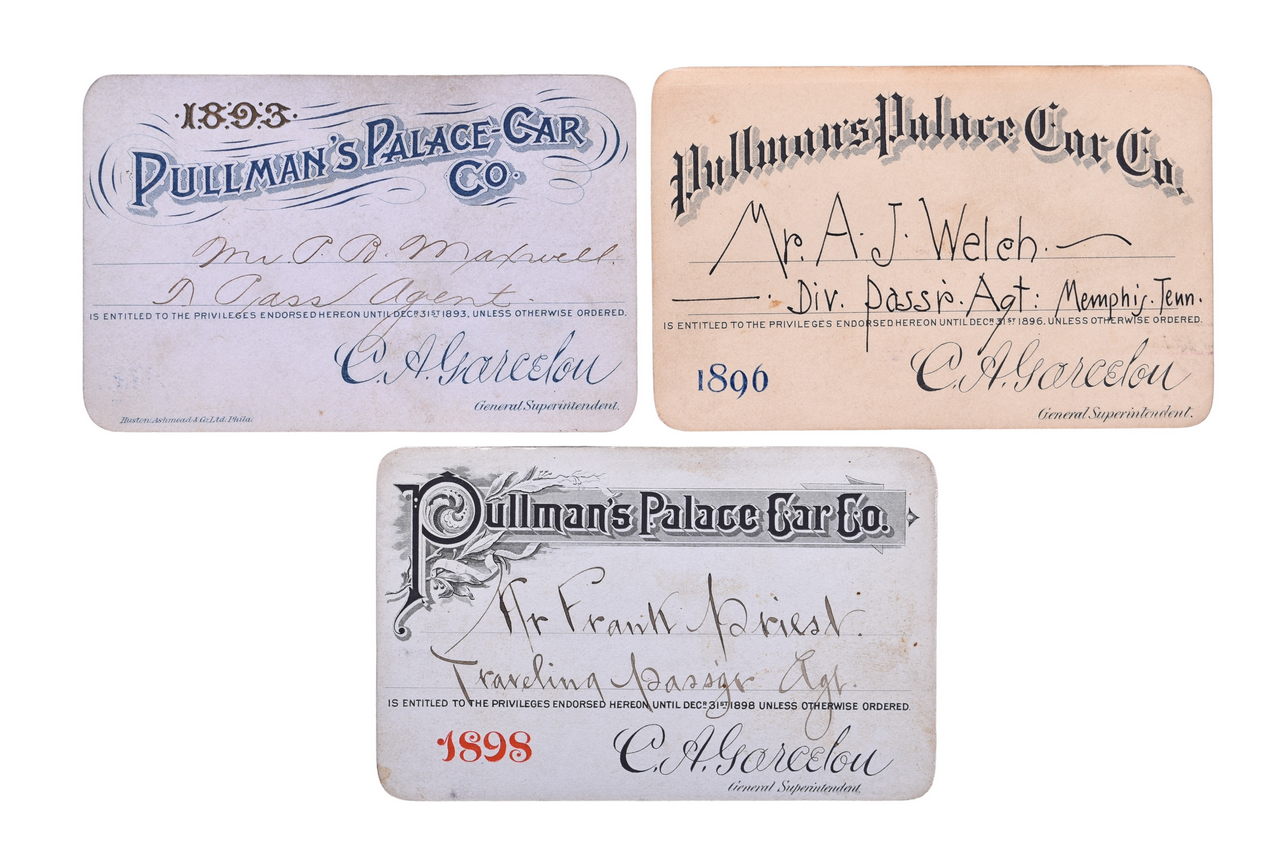 ·1893·
PULLMAN'S PALACE-CAR
CO.
Mr P. B. Maxwell.
Pass Agent.
IS ENTITLED TO THE PRIVILEGES ENDORSED HEREON UNTIL DECR 31ST 1893, UNLESS OTHERWISE ORDERED.
C. A. Garcelon
General Superintendent.
Huston, Ashmead & Co. Ltd. Phila.
Pullman's Palace Car Co.
Mr. A. J. Welch.
Div. passr. Agt: Memphis. Tenn.
IS ENTITLED TO THE PRIVILEGES ENDORSED HEREON UNTIL DECR 31ST 1896, UNLESS OTHERWISE ORDERED.
1896
C. A. Garcelon
General Superintendent.
Pullman's Palace Car Co.
Mr Frank Priest.
Traveling passgr Agt.
IS ENTITLED TO THE PRIVILEGES ENDORSED HEREON UNTIL DECR 31ST 1898 UNLESS OTHERWISE ORDERED.
1898
C. A. Garcelon
General Superintendent.